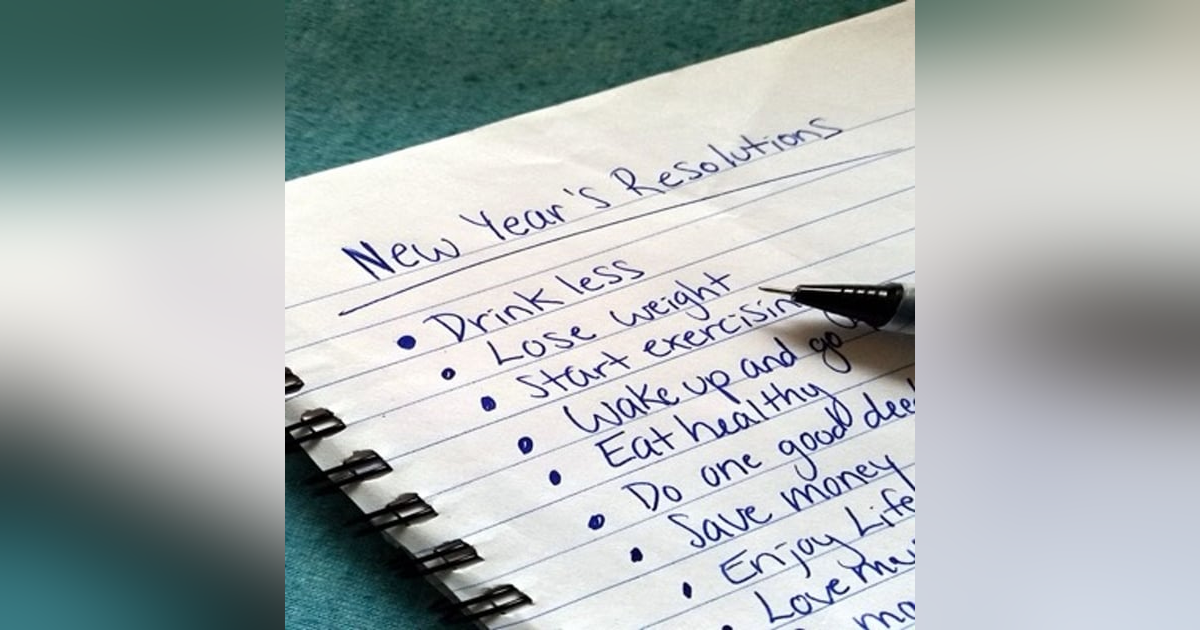 New Year's Resolutions
• Drink less
• Lose weight
• Start exercising
• Wake up and go
• Eat healthy
• Do one good deed
• Save money
• Enjoy Life
• Love